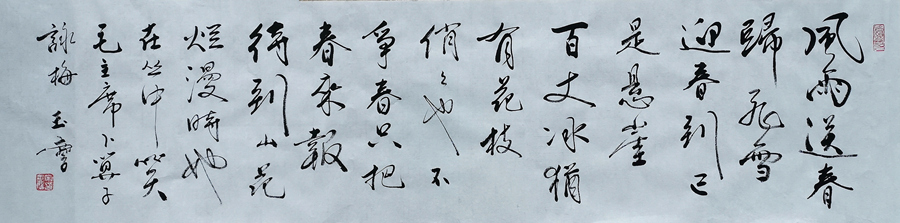 風雨送春
歸飛雪
迎春到已
是懸崖
百丈冰猶
有花枝
俏々也不
爭春只把
春來報
待到山花
爛漫時她
在丛中笑
毛主席卜算子
詠梅 玉